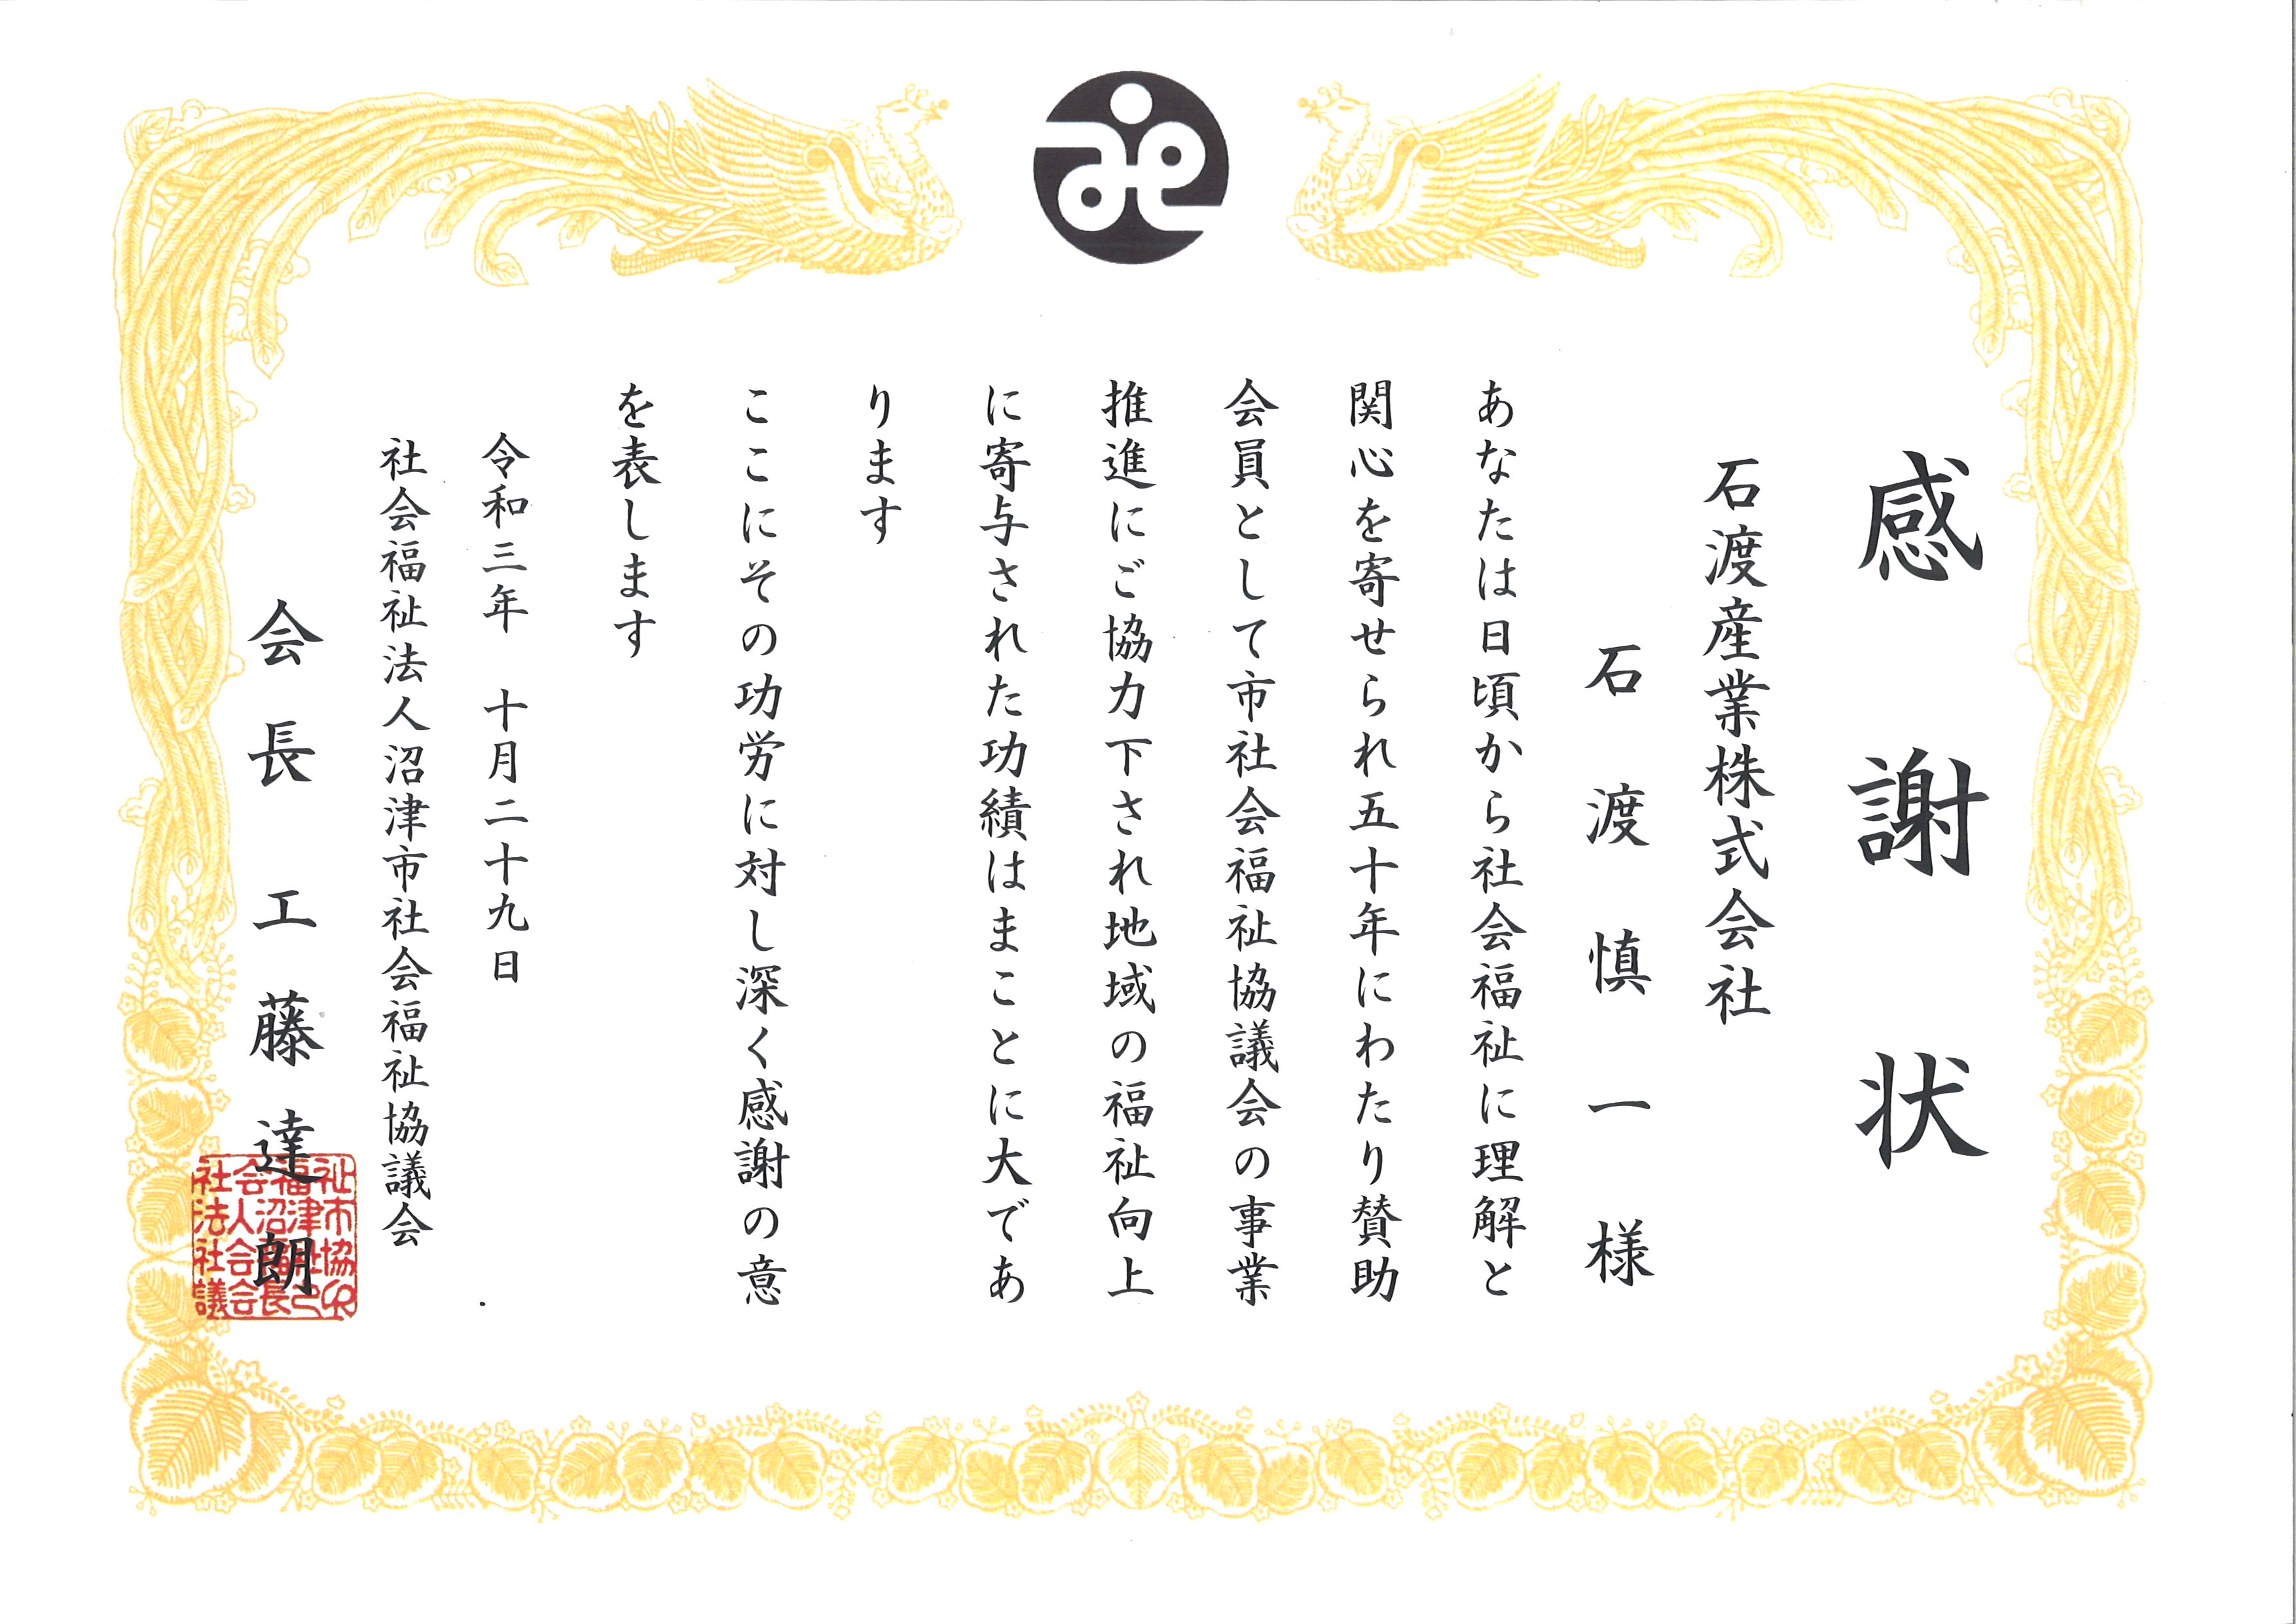 感謝状
石渡産業株式会社
石渡慎一様
あなたは日頃から社会福祉に理解と
関心を寄せられ五十年にわたり賛助
会員として市社会福祉協議会の事業
推進にご協力下され地域の福祉向上
に寄与された功績はまことに大であ
ります
ここにその功労に対し深く感謝の意
を表します
令和三年 十月二十九日
社会福祉法人沼津市社会福祉協議会
会長 工藤達朗